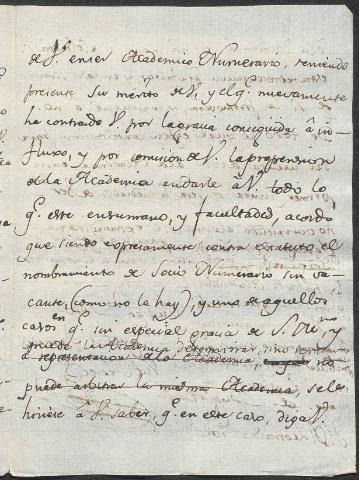 de V. en ser Academico Numerario, teniendo
presente su merito de V. y el q.e nuevamente
ha contraido V. por la gracia conseguida â in-
fluxo, y por comision de V. la propension
de la Academia a darle â V. todo lo
q.e este en su mano, y facultades, acordo
que siendo expresamente contra estatuto el
nombramiento de Socio Numerario sin va-
cante, (como no la hay), y uno de aquellos
casos en q.e sin especial gracia de S. M. no, y
puede la Academia determinar, sino
a representacion de la Academia, no
puede arbitrar la misma Academia, se le
hiciese â V. saber, q.e en este caso, diga V.